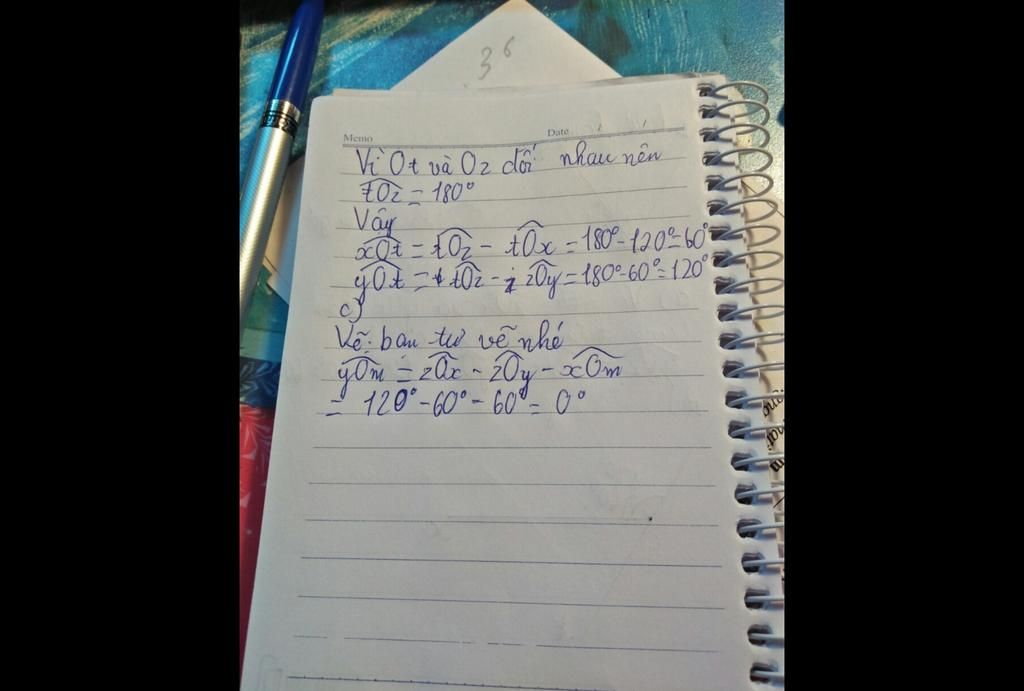 3⁶
Memo
Date / /
Vì Ot và Oz đối nhau nên
tOz = 180°
Vậy
xOt = tOz - tOx = 180° - 120° = 60°
yOt = tOz - zOy = 180° - 60° = 120°
c)
Vẽ: bạn tự vẽ nhé
yOm = zOx - zOy - xOm
= 120° - 60° - 60° = 0°